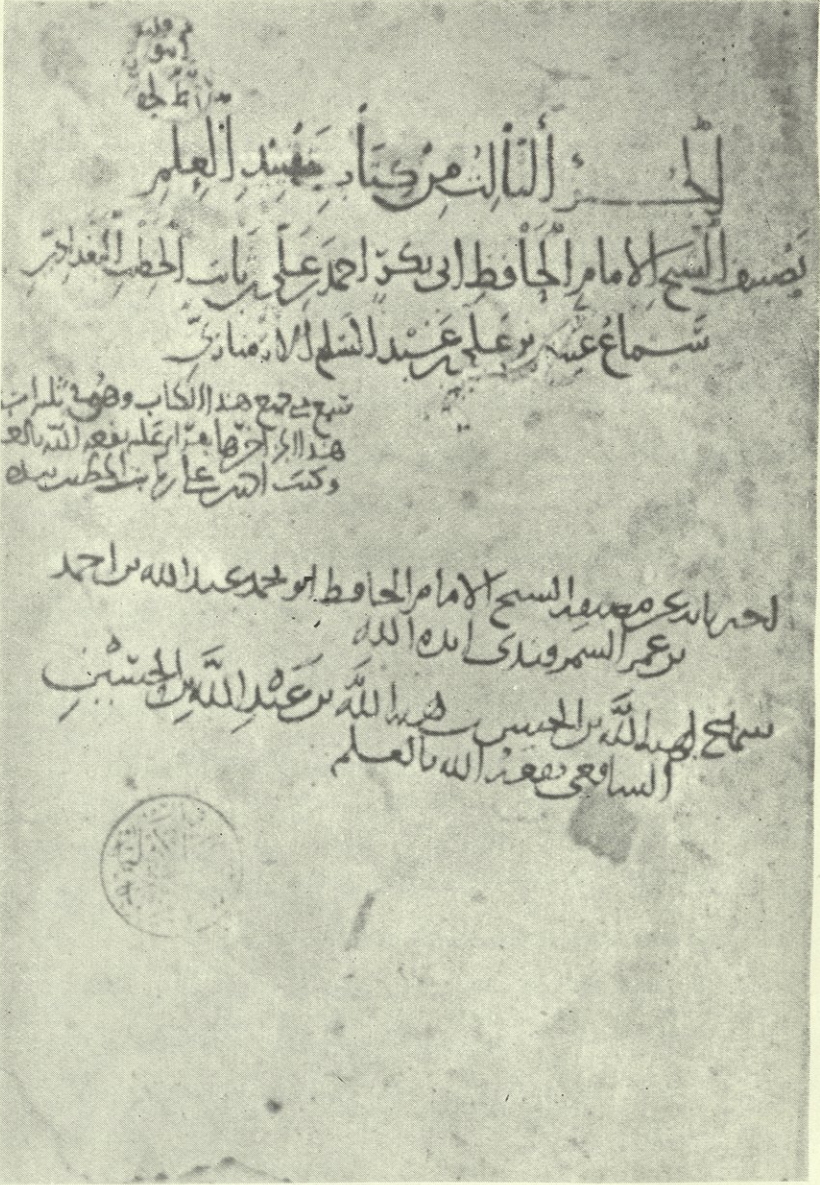 الجزء الثالث من كتاب تقييد العلم
تصنيف الشيخ الامام الحافظ ابى بكر احمد بن علي بن ثابت الخطيب البغدادي
سماع غيث بن علي بن عبد السلم الارمنازي
سمع مني جميع هذا الكتاب وهو ثلثة
هذا اخرها نفعه الله بالعلم
وكتب احمد بن علي بن ثابت الخطيب بيده
اخبرنا به عن مصنفه الشيخ الامام الحافظ ابو محمد عبد الله بن احمد
بن عمر السمرقندى ايده الله
سماع لهبة الله بن الحسن بن هبة الله بن عبد الله بن الحسين
الشافعى نفعه الله بالعلم